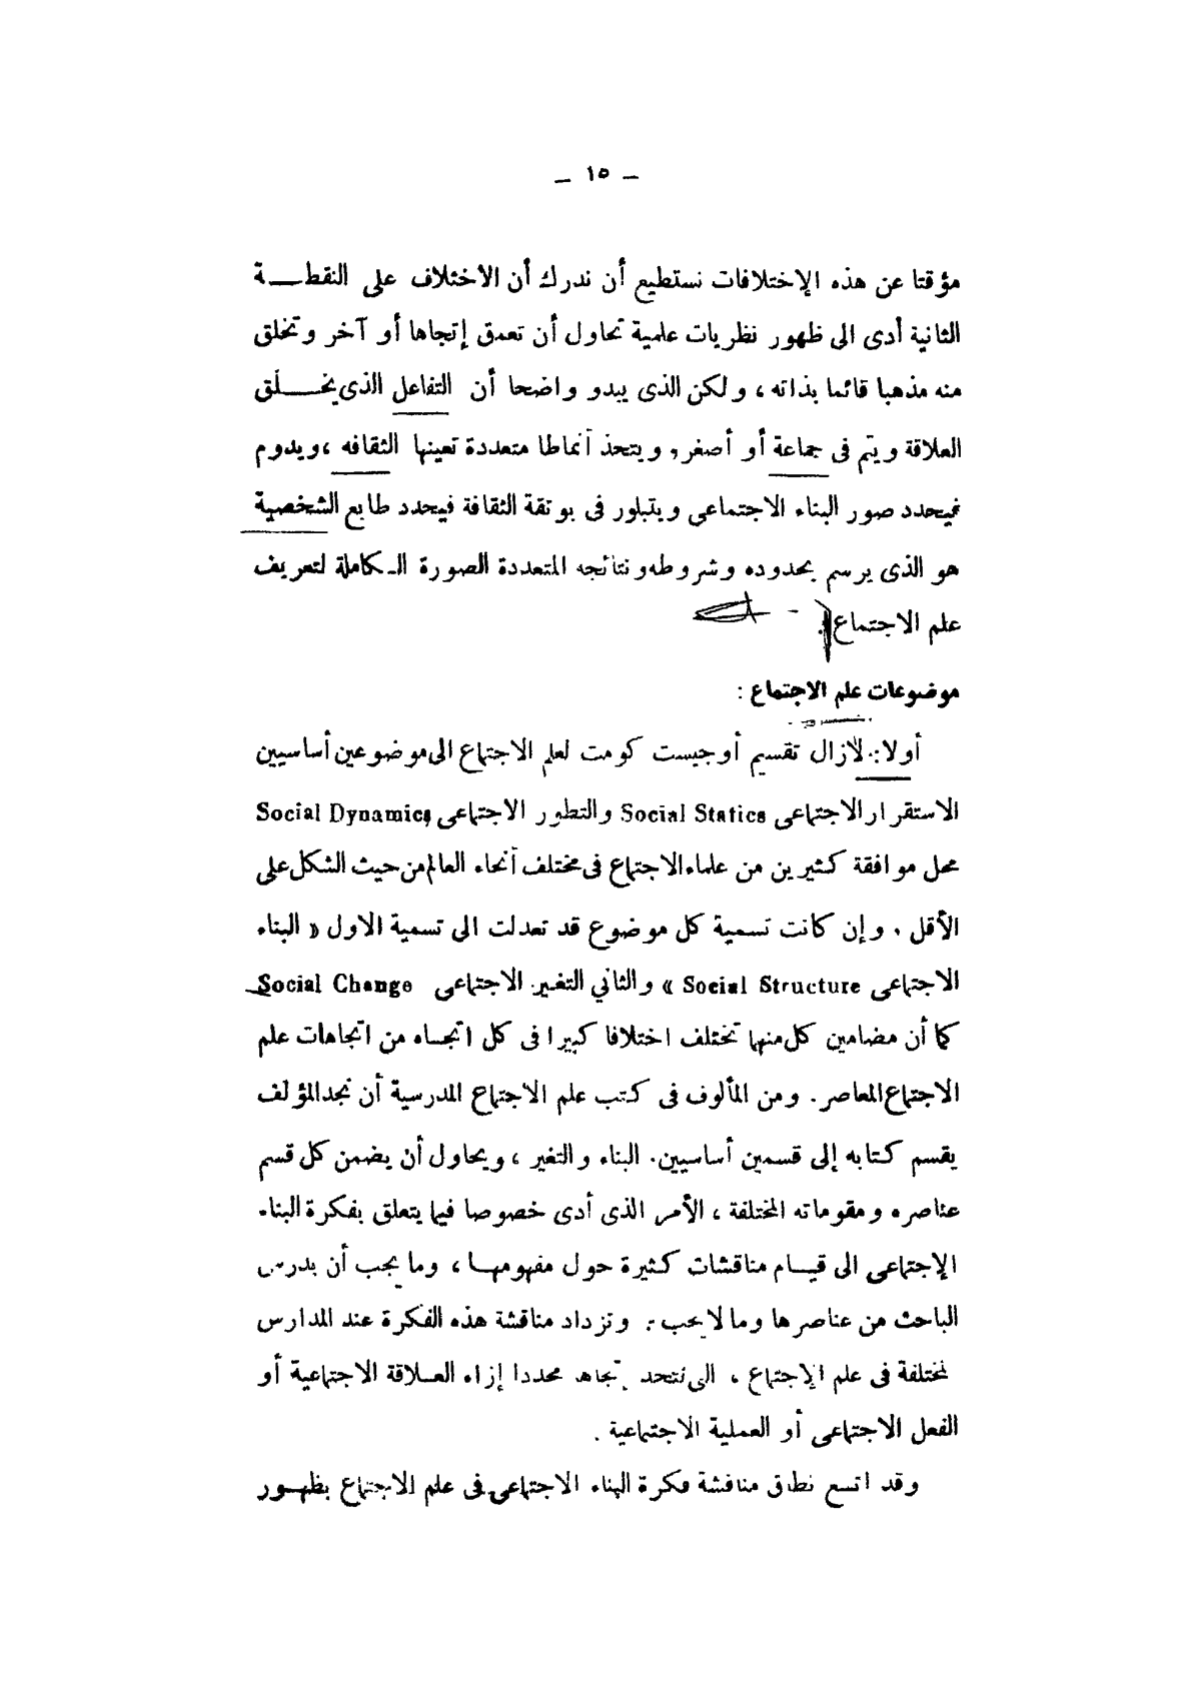 – ١٥ –
مؤقتا عن هذه الإختلافات نستطيع أن ندرك أن الاختلاف على النقطة
الثانية أدى الى ظهور نظريات علمية تحاول أن تعمق إتجاها أو آخر وتخلق
منه مذهبا قائما بذاته ، ولكن الذى يبدو واضحا أن التفاعل الذى يخلق
العلاقة ويتم فى جماعة أو أصغر, ويتخذ أنماطا متعددة تعينها الثقافه ، ويدوم
فيحدد صور البناء الاجتماعى ويتبلور فى بوتقة الثقافة فيحدد طابع الشخصية
هو الذى يرسم بحدوده وشروطه ونتائجه المتعددة الصورة الكاملة لتعريف
علم الاجتماع .
موضوعات علم الاجتماع :
أولا : لازال تقسيم أوجيست كومت لعلم الاجتماع الى موضوعين أساسيين
الاستقرار الاجتماعى Social Statics والتطور الاجتماعى Social Dynamics
محل موافقة كثيرين من علماء الاجتماع فى مختلف أنحاء العالم من حيث الشكل على
الأقل . وإن كانت تسمية كل موضوع قد تعدلت الى تسمية الاول « البناء
الاجتماعى Social Structure » والثانى التغير الاجتماعى Social Change
كما أن مضامين كل منها تختلف اختلافا كبيرا فى كل اتجاه من اتجاهات علم
الاجتماع المعاصر . ومن المألوف فى كتب علم الاجتماع المدرسية أن نجد المؤلف
يقسم كتابه إلى قسمين أساسيين . البناء والتغير ، ويحاول أن يضمن كل قسم
عناصره ومقوماته المختلفة ، الأمر الذى أدى خصوصا فيما يتعلق بفكرة البناء
الإجتماعى الى قيام مناقشات كثيرة حول مفهومها ، وما يجب أن يدرس
الباحث من عناصرها وما لا يجب . وتزداد مناقشة هذه الفكرة عند المدارس
المختلفة فى علم الاجتماع ، التى تتخذ إتجاها محددا إزاء العلاقة الاجتماعية أو
الفعل الاجتماعى أو العملية الاجتماعية .
وقد اتسع نطاق مناقشة فكرة البناء الاجتماعى فى علم الاجتماع بظهور